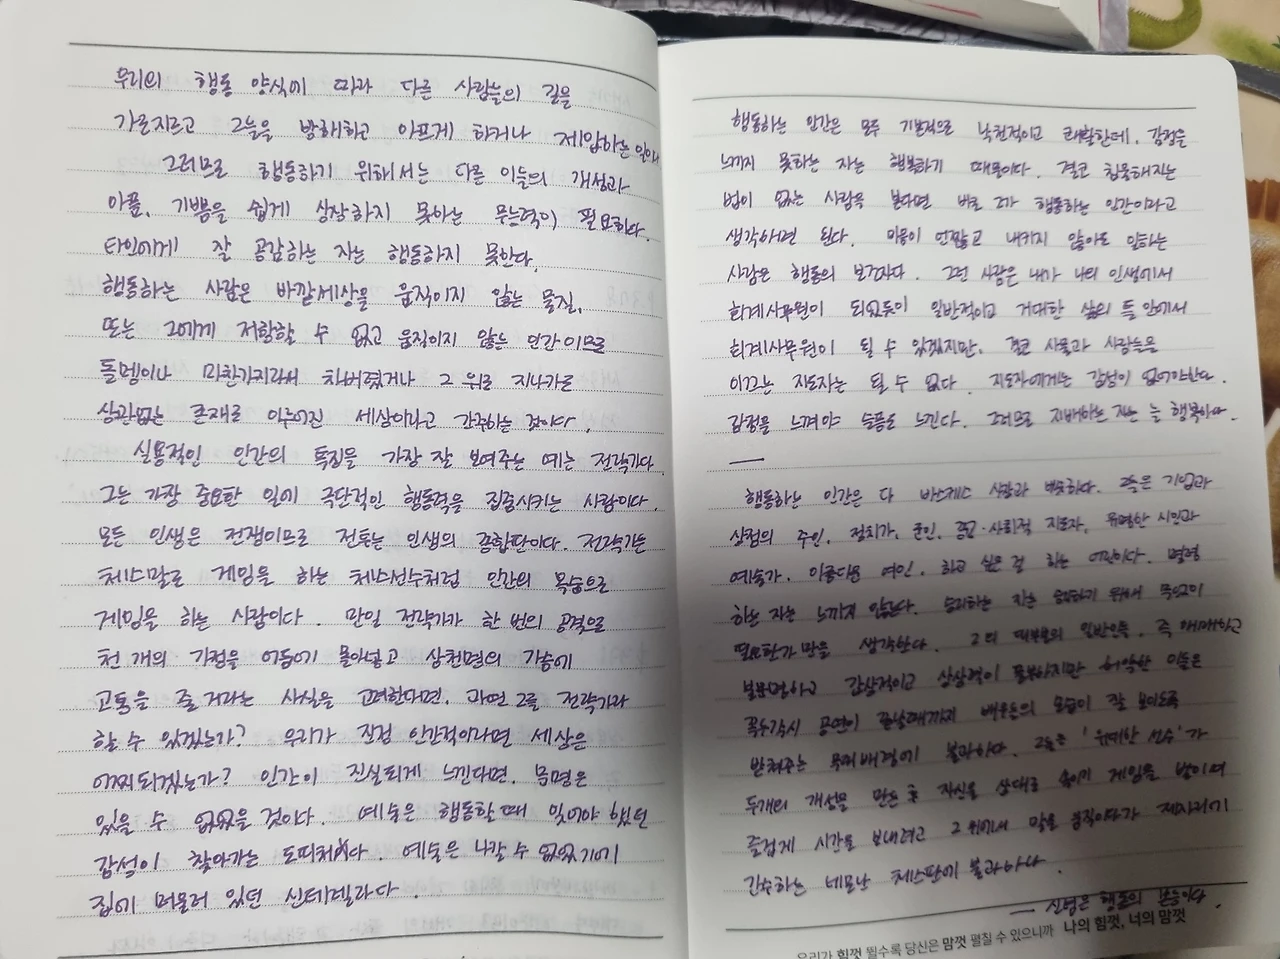 우리의 행동 양식에 따라 다른 사람들의 길을
가로지르고 그들을 방해하고 아프게 하거나 제압하는 일이다
그러므로 행동하기 위해서는 다른 이들의 개성과
아픔, 기쁨을 쉽게 상상하지 못하는 무능력이 필요하다.
타인에게 잘 공감하는 자는 행동하지 못한다.
행동하는 사람은 바깥세상을 움직이지 않는 물질,
또는 그에게 저항할 수 없고 움직이지 않는 인간이므로
돌멩이나 마찬가지라서 차버렸거나 그 위로 지나가도
상관없는 존재로 이루어진 세상이라고 간주하는 것이다.
실용적인 인간의 특징을 가장 잘 보여주는 예는 전략가다
그는 가장 중요한 일에 극단적인 행동력을 집중시키는 사람이다
모든 인생은 전쟁이므로 전투는 인생의 종합판이다. 전략가는
체스말로 게임을 하는 체스선수처럼 인간의 목숨으로
게임을 하는 사람이다. 만일 전략가가 한 번의 공격으로
천 개의 가정을 어둠에 몰아넣고 삼천명의 가슴에
고통을 줄 거라는 사실을 고려한다면, 과연 그를 전략가라
할 수 있겠는가? 우리가 진정 인간적이라면 세상은
어찌되겠는가? 인간이 진실되게 느낀다면, 문명은
있을 수 없었을 것이다. 예술은 행동할 때 잊어야 했던
감성이 찾아가는 도피처다. 예술은 나갈 수 없었기에
집에 머물러 있던 신데렐라다.
행동하는 인간은 모두 기본적으로 낙천적이고 쾌활한데, 감정을
느끼지 못하는 자는 행복하기 때문이다. 결코 침울해지는
법이 없는 사람을 본다면 바로 그가 행동하는 인간이라고
생각하면 된다. 마음이 언짢고 내키지 않아도 일하는
사람은 행동의 보조자다. 그런 사람은 내가 나의 인생에서
회계사무원이 되었듯이 일반적이고 거대한 삶의 틀 안에서
회계사무원이 될 수 있겠지만, 결코 사물과 사람들을
이끄는 지도자는 될 수 없다. 지도자에게는 감성이 없어야한다.
감정을 느껴야 슬픔도 느낀다. 그러므로 지배하는 자는 늘 행복하다.
행동하는 인간은 다 바스케스 사장과 비슷하다. 기업과
상점의 주인, 정치가, 군인, 종교·사회적 지도자, 유명한 시인과
예술가, 아름다운 여인, 하고 싶은 걸 하는 어린이다. 명령
하는 자는 느끼지 않는다. 승리하는 자는 승리하기 위해 무엇이
필요한가 만을 생각한다. 그 외 대부분의 일반인들, 즉 애매하고
불분명하고 감상적이고 상상력이 풍부하지만 허약한 이들은
꼭두각시 공연이 끝날때까지 배우들의 모습이 잘 보이도록
받쳐주는 무대배경에 불과하다. 그들은 '위대한 선수'가
두개의 개성을 만든 후 자신을 상대로 게임을 벌이며
즐겁게 시간을 보내려고 그 위에서 말을 움직이다가 제자리에
간수하는 네모난 체스판에 불과하다.
— 신념은 행동의 본능이다.
우리가 힘껏 뛸수록 당신은 맘껏 펼칠 수 있으니까 나의 힘껏, 너의 맘껏